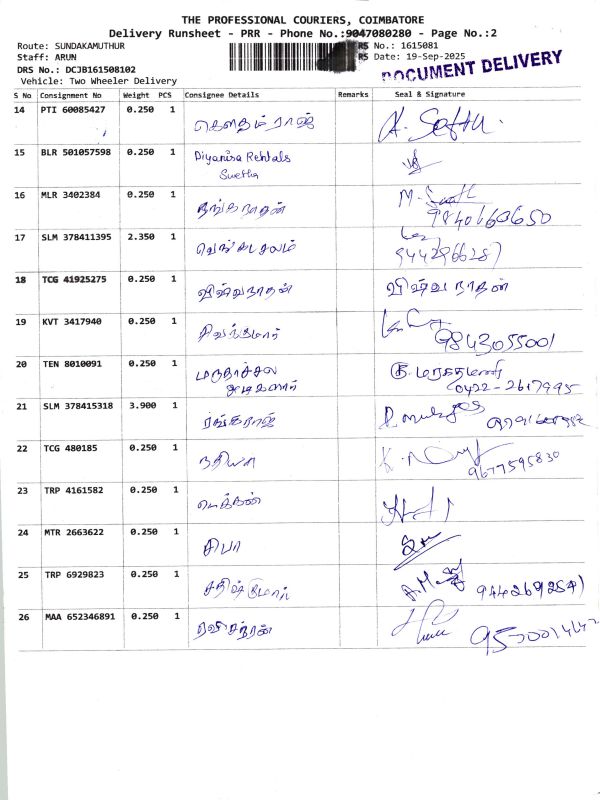 THE PROFESSIONAL COURIERS, COIMBATORE
Delivery Runsheet - PRR - Phone No.:9047080280 - Page No.:2
Route: SUNDAKAMUTHUR RS No.: 1615081
Staff: ARUN RS Date: 19-Sep-2025
DRS No.: DCJB161508102
Vehicle: Two Wheeler Delivery
DOCUMENT DELIVERY
S No Consignment No Weight PCS Consignee Details Remarks Seal & Signature
14 PTI 60085427 0.250 1 கௌதம் ராஜ்
15 BLR 501057598 0.250 1 Diyanisa Rentals
Swetha
16 MLR 3402384 0.250 1 M.
9840660650
17 SLM 378411395 2.350 1 வெங்கடாசலம்
9442966287
18 TCG 41925275 0.250 1 விஷ்வநாதன் விஷ்வநாதன்
19 KVT 3417940 0.250 1 சிவக்குமார்
9843055001
20 TEN 8010091 0.250 1 மருதாச்சல
அடிகளார்
0422-2617995
21 SLM 378415318 3.900 1 ரங்கராஜ்
22 TCG 480185 0.250 1 நதியா
9677595830
23 TRP 4161582 0.250 1
24 MTR 2663622 0.250 1 சிபா
25 TRP 6929823 0.250 1 சதிஷ்குமார்
26 MAA 652346891 0.250 1 ரவிசந்திரன்